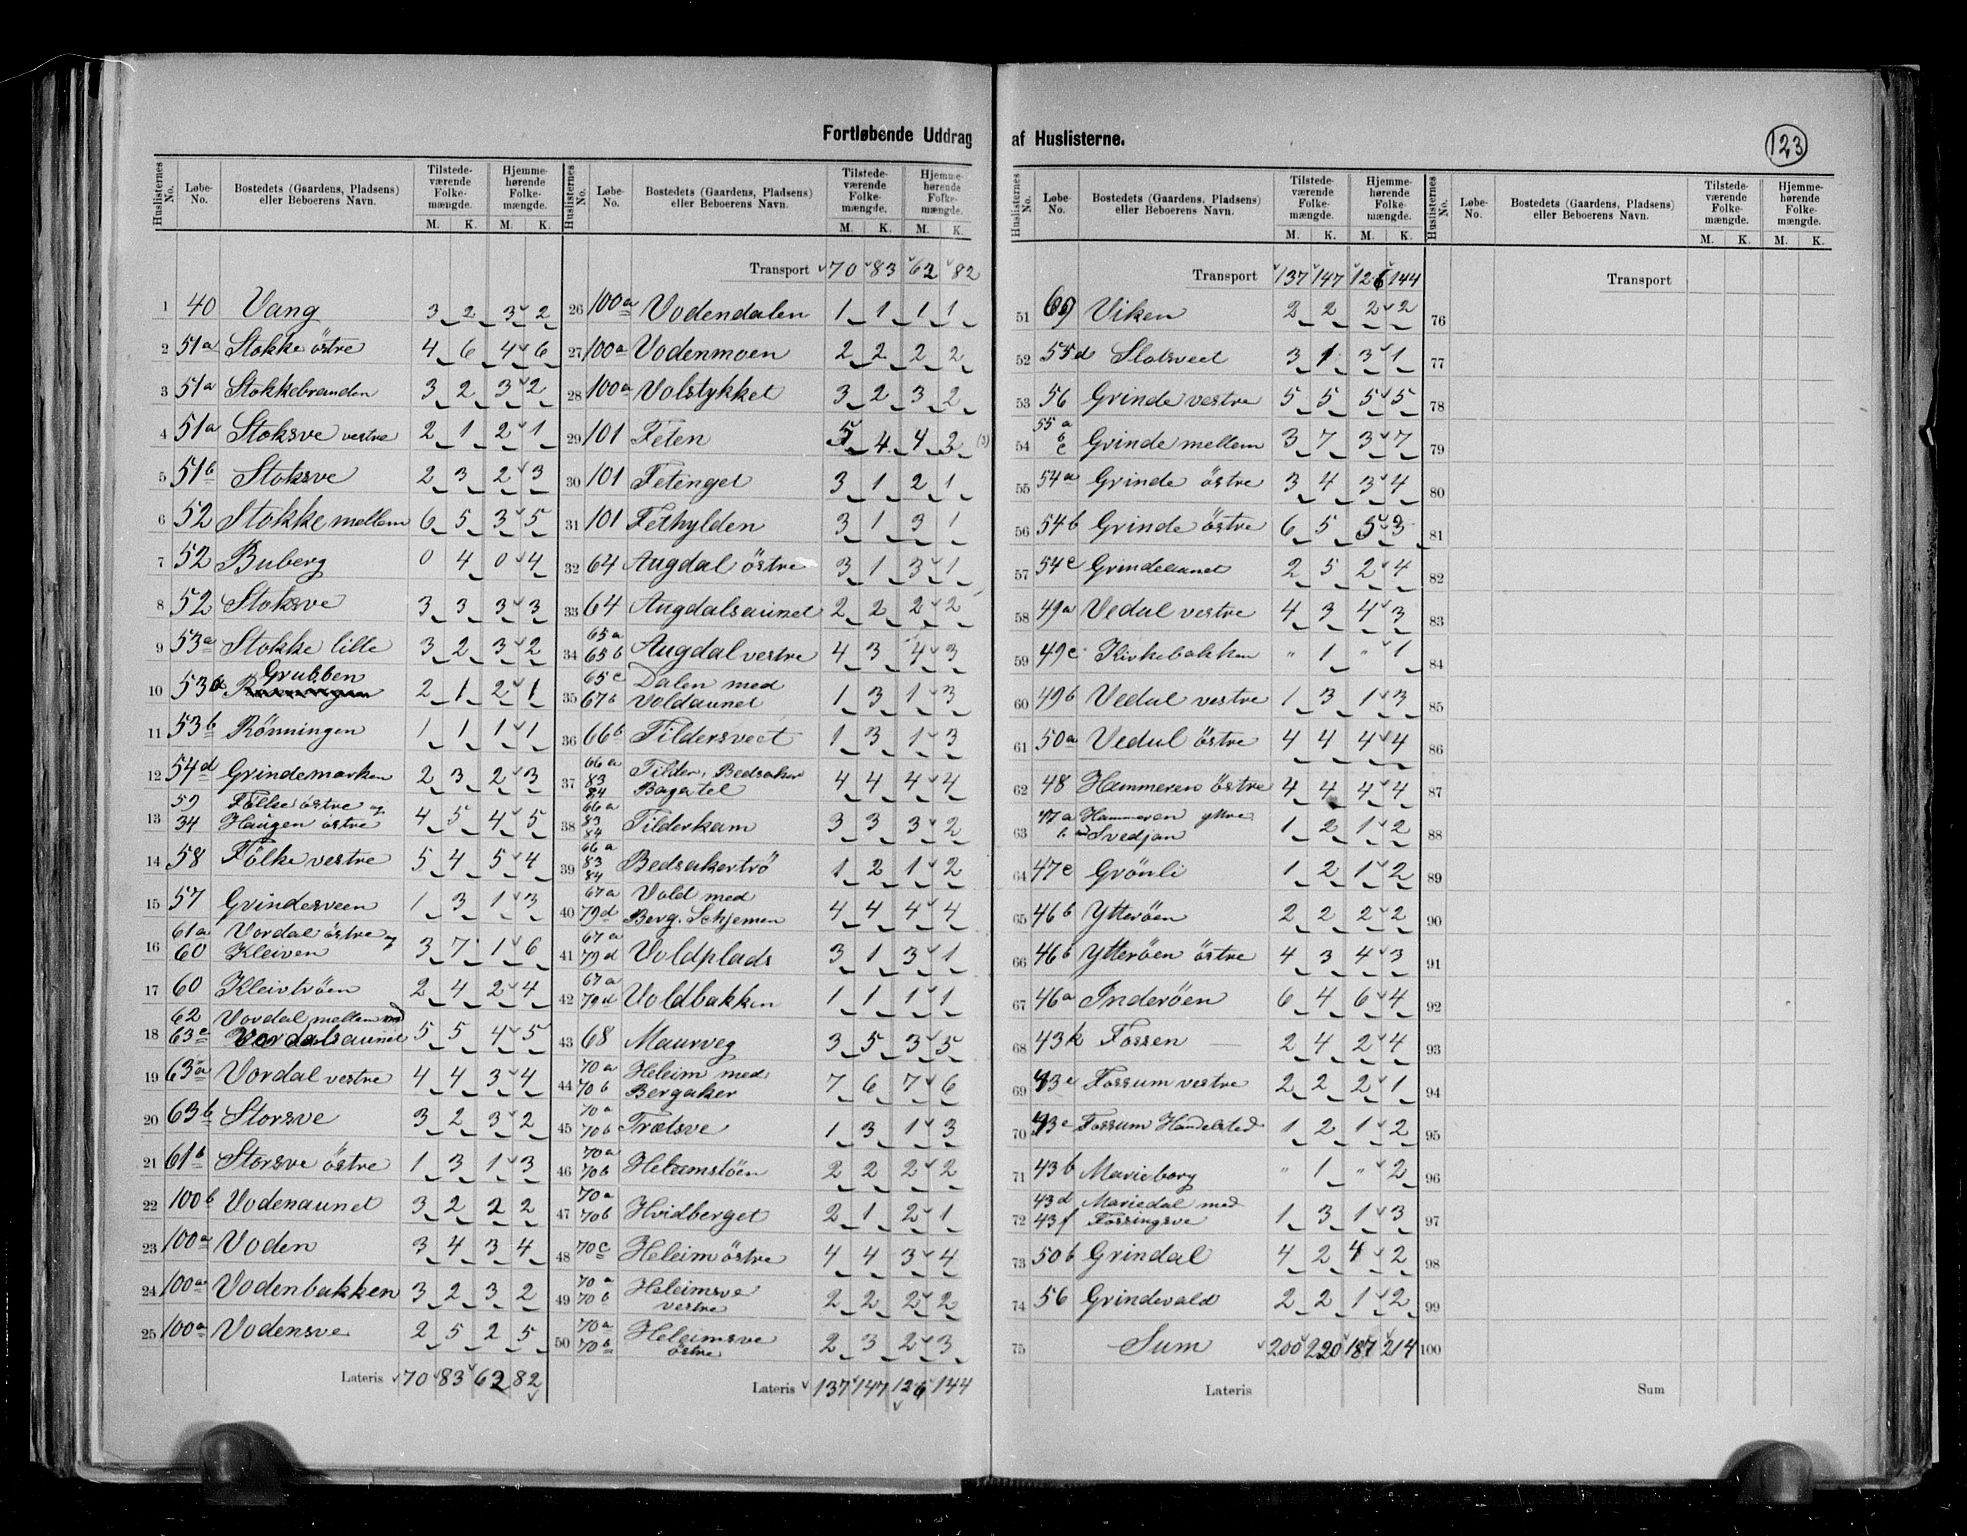 Fortløbende Uddrag af Huslisterne.
123
Huslisternes No. | Løbe-No. | Bostedets (Gaardens, Pladsens) eller Beboerens Navn. | Tilstedeværende Folkemængde. M. K. | Hjemmehørende Folkemængde. M. K.
1 40 Vang 3 2 3 2
2 51a Stokke östre 4 6 4 6
3 51a Stokkebranden 3 2 3 2
4 51a Stoksve vestre 2 1 2 1
5 51b Stoksve 2 3 2 3
6 52 Stokke mellem 6 5 3 5
7 52 Buberg 0 4 0 4
8 52 Stoksve 3 3 3 3
9 53a Stokke lille 3 2 3 2
10 53a Grubben 2 1 2 1
11 53b Rönningen 1 1 1 1
12 54d Grindemarken 2 3 2 3
13 59 34 Fölke östre og Haugen östre 4 5 4 5
14 58 Fölke vestre 5 4 5 4
15 57 Grindesveen 1 3 1 3
16 61a 60 Vordal östre og Kleiven 3 7 1 6
17 60 Kleivtröen 2 4 2 4
18 62 63c Vordal mellem med Vordalsaunet 5 5 4 5
19 63a Vordal vestre 4 4 3 4
20 63b Storsve 3 2 3 2
21 61b Storsve östre 1 3 1 3
22 100b Vodenaunet 3 2 2 2
23 100a Voden 3 4 3 4
24 100a Vodenbakken 3 2 3 2
25 100a Vodensve 2 5 2 5
Lateris 70 83 62 82
Huslisternes No. | Løbe-No. | Bostedets (Gaardens, Pladsens) eller Beboerens Navn. | Tilstedeværende Folkemængde. M. K. | Hjemmehørende Folkemængde. M. K.
Transport 70 83 62 82
26 100a Vodendalen 1 1 1 1
27 100a Vodenmoen 2 2 2 2
28 100a Volstykket 3 2 3 2
29 101 Feten 5 4 4 2 (3)
30 101 Fetenget 3 1 2 1
31 101 Fethylden 3 1 3 1
32 64 Augdal östre 3 1 3 1
33 64 Augdalsaunet 2 2 2 2
34 65a 65b Augdal vestre 4 3 4 3
35 65c 67b Dalen med Voldaunet 1 3 1 3
36 66b Tildersveet 1 3 1 3
37 66a 83 84 Tilder, Bedsaker Bagatel 4 4 4 4
38 66a 83 84 Tilderkam 3 3 3 2
39 66a 83 84 Bedsakertrö 1 2 1 2
40 67a 79d Vold med Berg. Schjemen 4 4 4 4
41 67a 79d Voldplads 3 1 3 1
42 67a 79d Voldbakken 1 1 1 1
43 68 Maurveg 3 5 3 5
44 70a 70b Heleim med Bergaker 7 6 7 6
45 70a 70b Trætsve 1 3 1 3
46 70a 70b Heleimstöen 2 2 2 2
47 70a 70b Hvidberget 2 1 2 1
48 70c Heleim östre 4 4 3 4
49 70a 70b Heleimsve vestre 2 2 2 2
50 70a 70b Heleimsve östre 2 3 2 3
Lateris 137 147 126 144
Huslisternes No. | Løbe-No. | Bostedets (Gaardens, Pladsens) eller Beboerens Navn. | Tilstedeværende Folkemængde. M. K. | Hjemmehørende Folkemængde. M. K.
Transport 137 147 126 144
51 69 Viken 2 2 2 2
52 55d Slotsveet 3 1 3 1
53 56 Grinde vestre 5 5 5 5
54 55a b c Grinde mellem 3 7 3 7
55 54a Grinde östre 3 4 3 4
56 54b Grinde östre 6 5 5 3
57 54c Grindeaunet 2 5 2 4
58 49a Vedul vestre 4 3 4 3
59 49c Kirkebakken " 1 " 1
60 49b Vedul vestre 1 3 1 3
61 50a Vedul östre 4 4 4 4
62 48 Hammeren östre 4 4 4 4
63 47a b Hammeren yttre med Svedjan 1 2 1 2
64 47c Grönli 1 2 1 2
65 46b Ytteröen 2 2 2 2
66 46b Ytteröen östre 4 3 4 3
67 46a Inderöen 6 4 6 4
68 43k Fossen 2 4 2 4
69 43c Fossum vestre 2 2 2 1
70 43c Fossum Handelsted 1 2 1 2
71 43b Marieborg " 1 " 2
72 43d 43f Mariedal med Fossingsve 1 3 1 3
73 50b Grindal 4 2 4 2
74 56 Grindevald 2 2 1 2
75 Sum 200 220 187 214
Lateris
Huslisternes No. | Løbe-No. | Bostedets (Gaardens, Pladsens) eller Beboerens Navn. | Tilstedeværende Folkemængde. M. K. | Hjemmehørende Folkemængde. M. K.
Transport
76
77
78
79
80
81
82
83
84
85
86
87
88
89
90
91
92
93
94
95
96
97
98
99
100
Sum